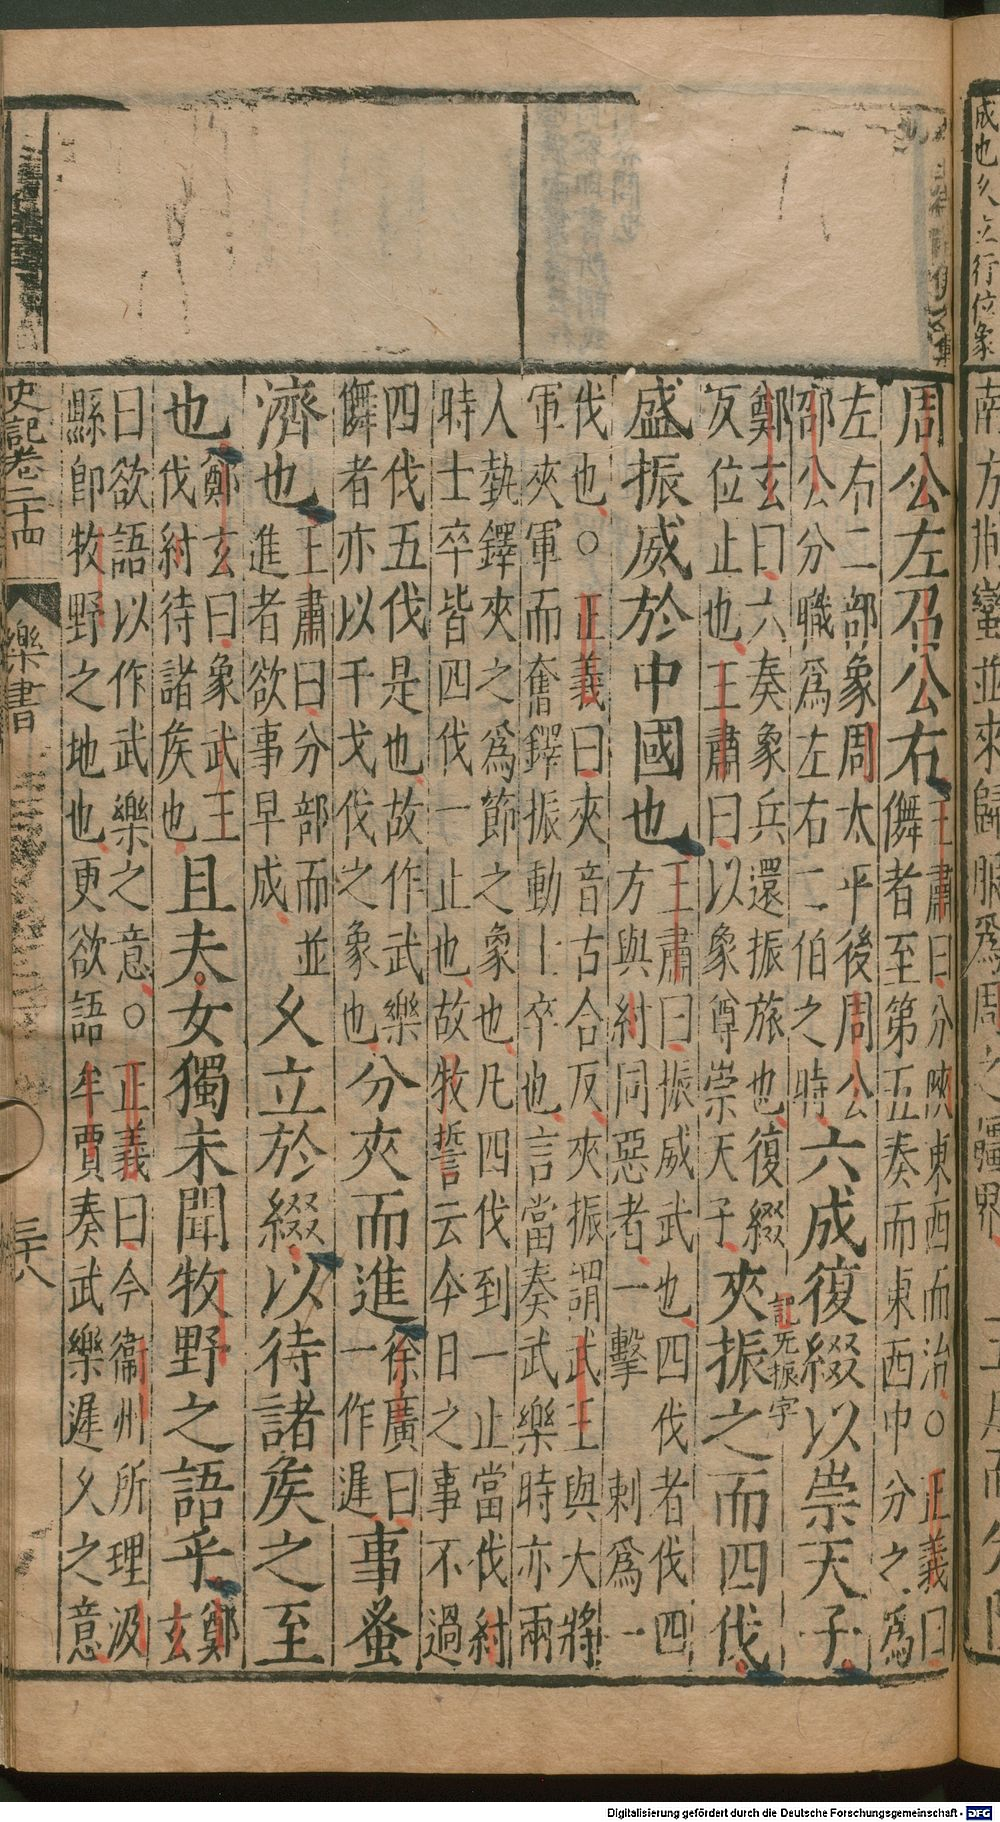 成也久立行位象
南方荆蠻並來歸服爲周之疆界
周公左召公右
王肅曰分陝東西而治○正義曰
儛者至第五奏而東西中分之爲
左右二部象周太平後周公
邵公分職爲左右二伯之時
六成復綴以崇天子
鄭玄曰六奏象兵還振旅也復綴
反位止也王肅曰以象尊崇天子
記无振字
夾振之而四伐
盛振威於中國也
王肅曰振威武也四伐者伐四
方與紂同惡者一擊刺爲一
伐也○正義曰夾音古合反夾振謂武王與大將
軍夾軍而奮鐸振動士卒也言當奏武樂時亦兩
人執鐸夾之爲節之象也凡四伐到一止當伐紂
時士卒皆四伐一止也故牧誓云今日之事不過
四伐五伐是也故作武樂
儛者亦以干戈伐之象也
分夾而進
徐廣曰
一作遲
事蚤
濟也
王肅曰分部而並
進者欲事早成
久立於綴以待諸侯之至
也
鄭玄曰象武王
伐紂待諸侯也
且夫女獨未聞牧野之語乎
鄭
玄
曰欲語以作武樂之意○正義曰今衞州所理汲
縣卽牧野之地也更欲語牟賈奏武樂遲久之意
史記卷二十四
樂書
三十八
Digitalisierung gefördert durch die Deutsche Forschungsgemeinschaft - DFG